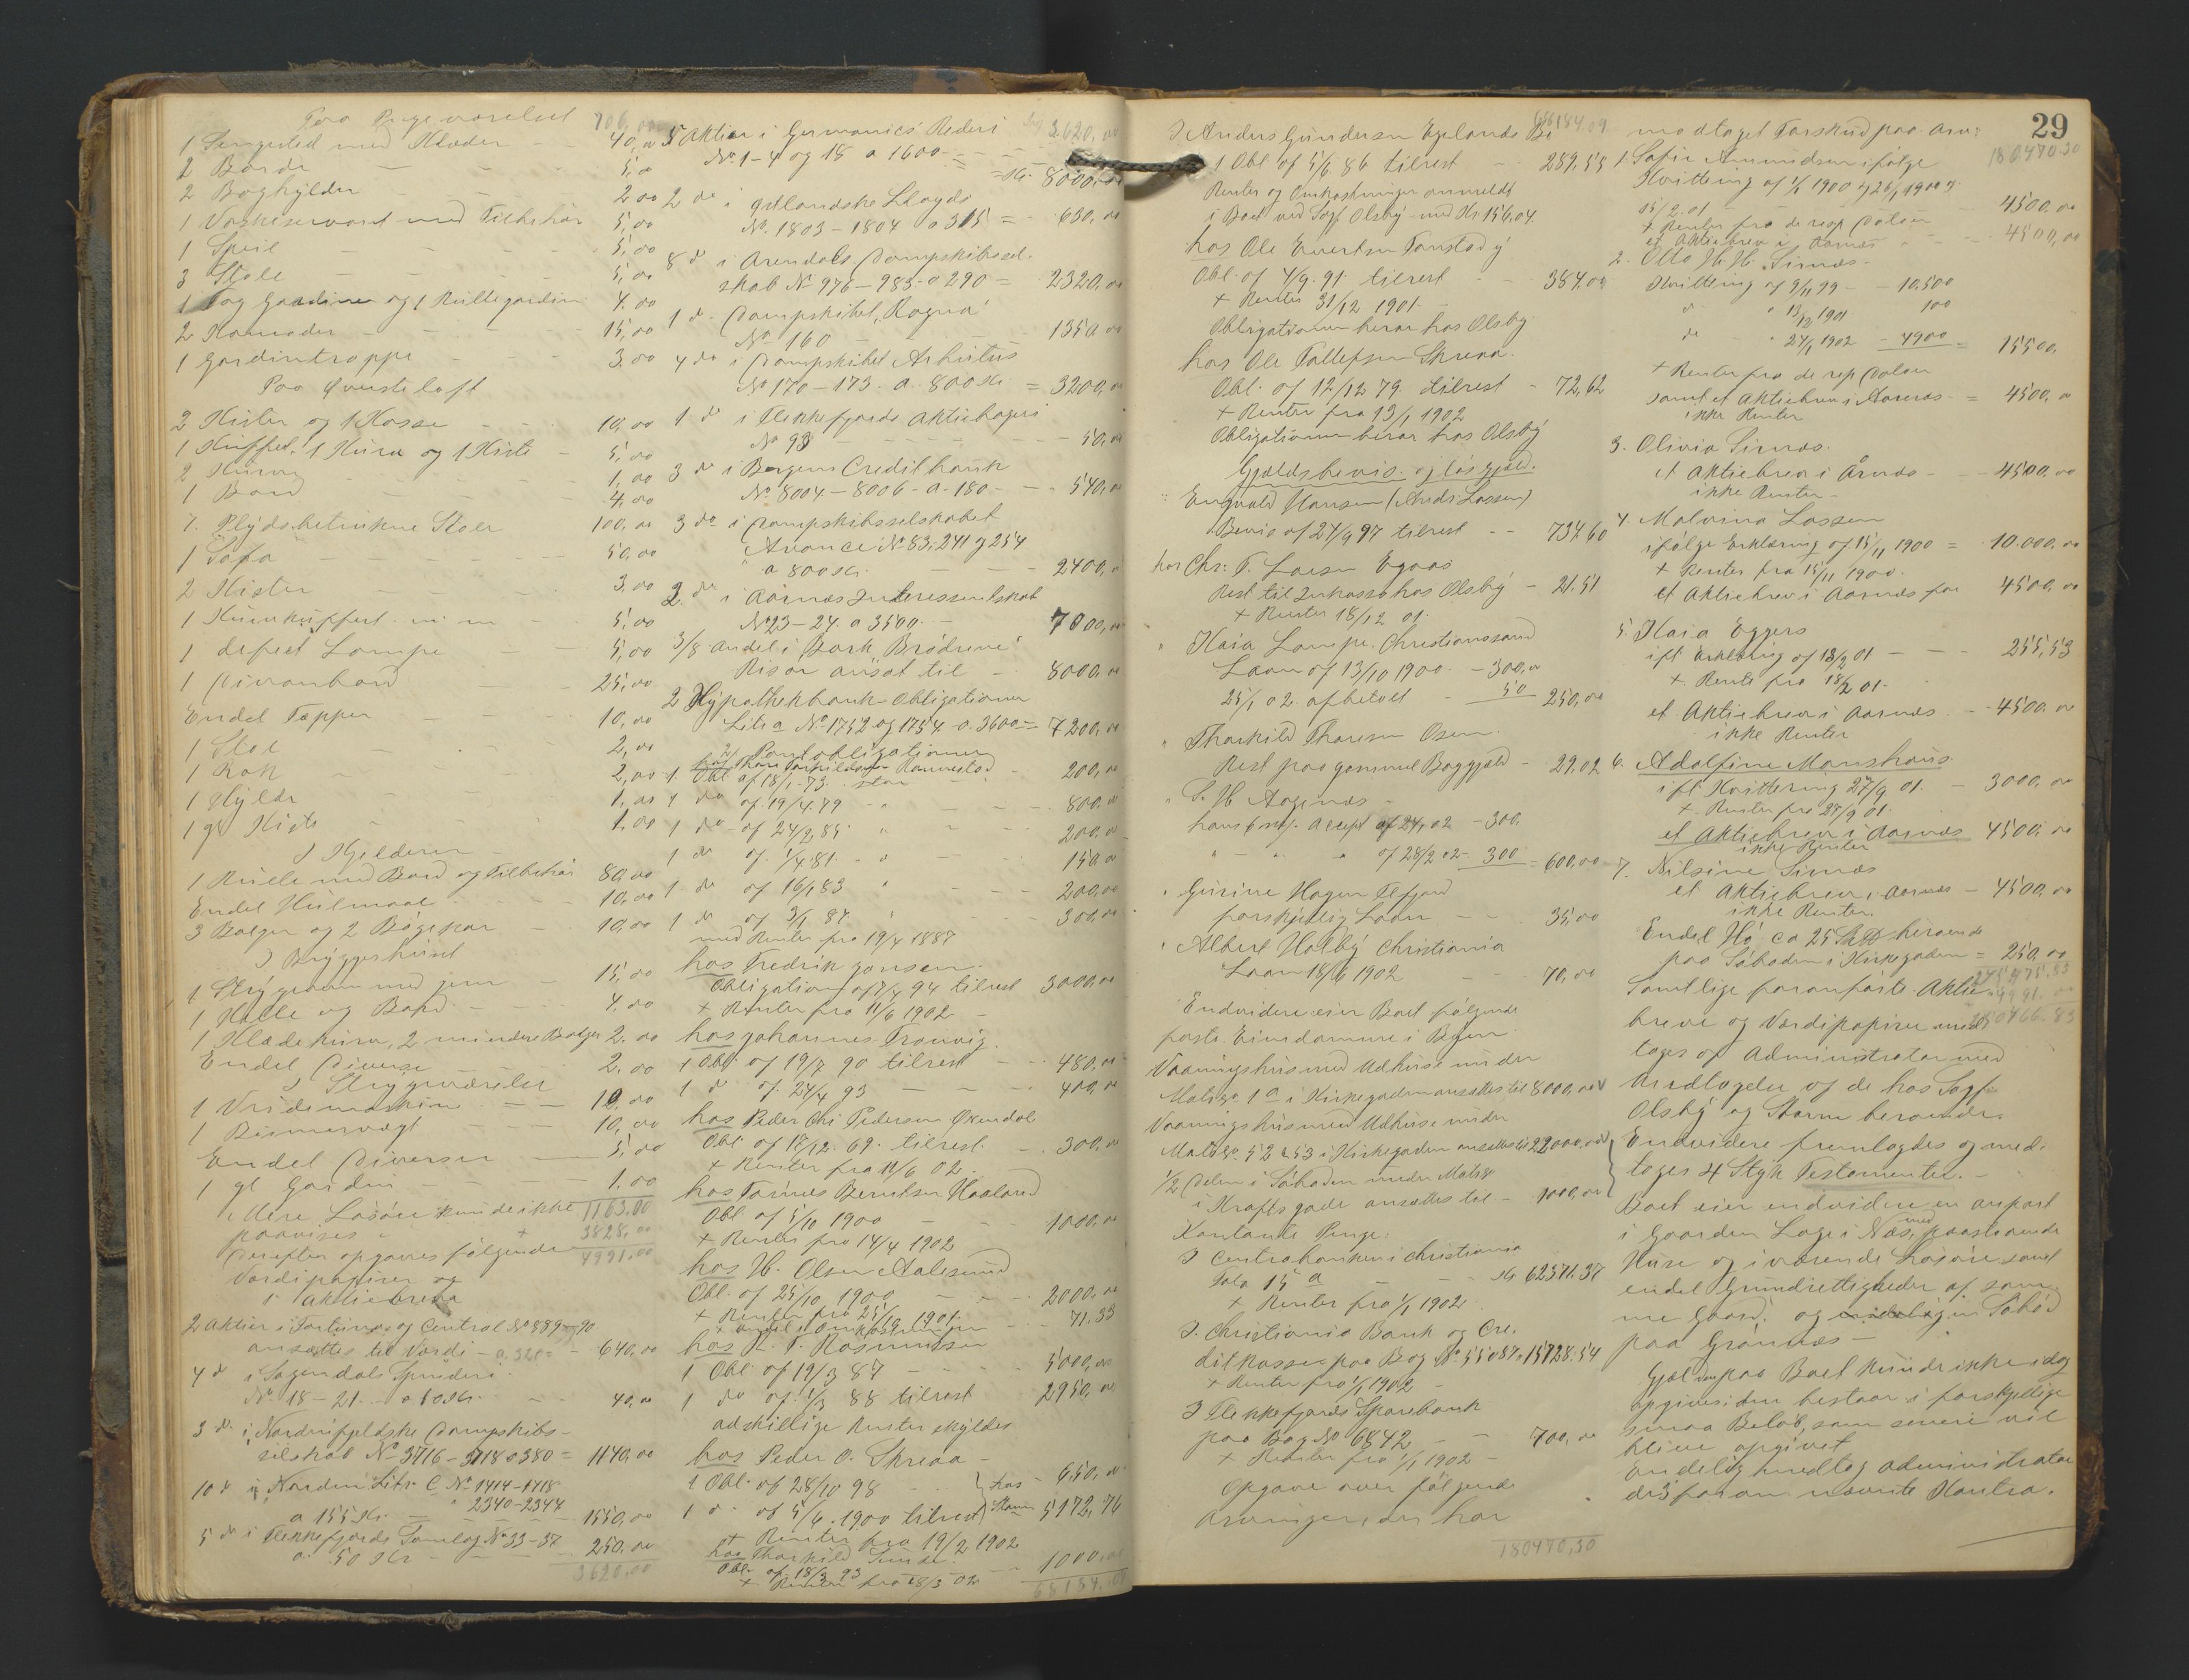 Paa Pigeværelset 706,00
1 Sengested med Klæder - 40,00
2 Borde - 5,00
2 Boghylder - 2,00
1 Vaskeservant med Tilbehør 5,00
1 Speil - 5,00
3 Stole - 5,00
1 Fag Gardiner og 1 Rullegardin 4.00
2 Komoder - 15,00
1 Gardintrappe - 3.00
Paa Øverste loft
2 Kister og 1 Kasse - 10,00
1 Kuffert, 1 Kurv og 1 Kiste - 5,00
2 Kurve 1,00
1 Bord 4,00
7. Plydsbetrukne Stoler 100,00
1 Sofa - 50,00
2 Kister 3,00
1 Kurvkuffert m. m - 5,00
1 defect Lampe - 5,00
1 Divanbord - 25,00
Endel Tæpper - 10,00
1 Stol - 2,00
1 Rok - 2,00
1 Hylde - 1,00
1 gl Kiste - 1,00
I Kjelderen -
1 Rulle med Bord og Tilbehør 80,00
Endel Hulmaal - 10,00
3 Balger og 2 Bøgekar - 10,00
I Bryggerhuset
1 Strygeovn med jern - 15,00
1 Kolle og Bord - 4,00
1 Klædekurv, 2 mindre Balger 2.00
Endel Diverse 2.00
I Strygeværelset
1 Vridemaskin - 10,00
1 Bismervægt - 10,00
Endel Diverse - 5,00
1 gl Gardin - 1.00
Mere Løsøre kunde ikke 1163,00
paavises. + 3828,00
Derefter opgaves følgende 4991,00
Værdipapirer og
Aktiebreve
2 Aktier i Fortuna og Central No 889-90
ansættes til Værdi - a 320 = - 640,00
4 do i Sagendals Spinderi
No 18-21 - a 10 Kr. - 40,00
3 do i Nordenfjeldske Dampskibs-
selskab No 3716-3718 a 380 = 1140,00
10 do i Norden Litr. C No 1714-1718
" 2340-2344
a 155 Kr. - 1550,00
5 do i Flekkefjords Samlag No 33-37
a 50 Kr - 250,00
3620,00
3.620,00
5 Aktier i Germanics Rederi
No 1-4 og 18 a 1600 - = Kr. 8000,00
2 do i Østlandske Lloyds
No. 1803-1804 a 315 = 630,00
8 do i Arendals Dampskibssel-
skab No 976-983 a 290 = 2320,00
1 do Dampskibet "Ragna"
No 160 - 1350,00
4 do i Dampskibet Arbutus
No 170-173. a. 800 Kr. = 3200,00
1 do i Flekkefjords Aktiebageri
No 93 - 50,00
3 do i Bergens Creditbank
No 8004-8006 - a - 180 - 540,00
3 do i Dampskibsselskabet
Avance No 83, 241 og 254
a 800 Kr. - 2400,00
2 do i Aarnæs Interessentskab
No 23-24. a 3500. - 7000,00
3/8 Andel i Bark "Brødrene"
Risør ansat til - 8000,00
2 Hypothekbank-Obligationer
Litr a No 1752 og 1754 a. 3600 = 7200,00
Pantobligationer
1 Obl af 18/1. 73. stor 200,00
1 do af 19/4.79 " - 800,00
1 do - af 24/2.85 " 200,00
1 do af. 1/4.81. " 150,00
1 do af 16/1 83 " 200,00
1 do af 3/1 87. 300,00
med Renter fra 19/4 1887
hos Fredrik Jansen.
Obligation af 7/4 94 tilrest 3000,00
+ Renter fra 11/6 1902 -
hos Johannes Tronvig.
1 Obl. af 19/7 90 tilrest - 480,00
1 do af. 24/4 93 - 400,00
hos Peder Chr Pedersen Øxendal
Obl. af 17/12. 69. tilrest. - 300,00
+ Renter fra 11/6 02.
hos Tørres Berntsen Haaland
Obl. af 5/10 1900 - 1000,00
+ Renter fra 14/4 1902
hos H. Olsen Aalesund
Obl. af 25/10 1900 - 2000,00
+ Renter fra 25/10 1901.
+ andel i Omkostninger - 71.33
hos R. T. Rasmussen
1 Obl. af 19/3 87 - 5000,00
1 do af. 1/3 88 tilrest 2950,00
adskillige Renter skyldes
hos Peder O. Skreaa -
1 Obl. af 28/10 98 hos 650,00
1 do af 5/6. 1900 tilrest Stam 5172,76
+ Renter fra 19/2 1902
hos Thorkild Sunde.
Obl. af 18/3 93 - 1000,00
+ Renter fra 18/3 02
68184,09
68184.09
I Anders Gundersen Egelands Bo
1 Obl af 5/6 86 tilrest - 289,55
Renter og Omkostninger anmeldt
i Boet ved Sagf Olsby med Kr 156,04.
hos Ole Evertsen Tonstad y
Obl. af 4/9. 91. tilrest - 384,00
+ Renter 31/12 1901.
Obligationen beror hos Olsby
hos Ole Tallefsen Skreaa.
Obl. af 12/12 79. tilrest - 72,62
+ Renter fra 13/1 1902
Obligationen beror hos Olsby
Gjældsbevis og løs gjæld.
Engvald Hansen (Ands: Lassen)
Bevis af 24/9 97 tilrest - 734,60
hos Chr. F. Larsen Egaas
Rest til Inkasso hos Olsby - 21.51
+ Renter 18/12 01.
" Kaia Lampe. Christianssand
Laan af 13/10 1900 - 300,00
25/1 02. afbetalt - 50 250,00
" Thorkild Thoresen Osen.
Rest paa gammel Boggjæld - 29,02
" S. H. Aagenæs -
hans 6 mdr. Accept af 24/1 02 - 300.
" " af 28/2 02 - 300 = 600,00
" Gurine Hagen Elfjord
forskjellig Laan - 35,00
" Albert Holby Christiania
Laan 18/6 1902 - 70,00
Endvidere eier Boet følgende
faste Eiendomme i Byen
Vaaningshus med Udhuse under
Matr. No 1 a i Kirkegaden ansættes til 8000,00
Vaaningshus med Udhuse under
Matr No 52 & 53 i Kirkegaden ansættes til 22000,00
1/2 Delen i Søboden under Matr No
i Krafts gade ansættes til - 1000,00
Kontante Penge:
I Centralbanken i Christiania
Folio 15 a - Kr 62571.37
+ Renter fra 1/1 1902
I. Christiania Bank og Cre.
ditkasse paa Bog No 55087. 15728.54
+ Renter fra 1/1 1902 -
I Flekkefjords Sparebank
paa Bog No 6842 - 700,00
+ Renter fra 1/1 1902 -
Opgave over følgende
Arvinger, der har
180470,30
29
modtaget Forskud paa Arv:
180470.30
1. Sofie Amundsen ifølge
Kvittering af 1/1 1900 og 26/1 1900 og
15/2.01 - 4500,00
+ Renter fra de resp Datoer
et Aktiebrev i Aarnæs - 4500,00
2. Otto H. H. Sirnæs -
Kvittering af 9/11 99 - 10.500
" " 13/12 1901 100
do " 24/1 1902 - 4900 = 15500,
+ Renter fra de resp Datoer
samt et Aktiebrev i Aarnæs - = 4500,00
ikke Renter
3. Olivia Sirnæs.
et Aktiebrev i Årnæs - 4500,00
ikke Renter -
4. Malvina Lassen
ifølge Erklæring af 15/11 1900 = 10.000,00
+ Renter fra 15/11 1900.
et Aktiebrev i Aarnæs for 4500,00
5. Kaia Eggers
ifl Erklæring af 18/2 01 - 255,53
+ Rente fra 18/2 01.
et Aktiebrev i Aarnæs - 4500.00
ikke Renter
6. Adolfine Monshaus.
ifl Kvittering 27/9 01. - 3000,00
+ Renter fra 27/9 01.
et Aktiebrev i Aarnæs 4500,00
ikke Renter
7. Nilsine Sirnæs
et Aktiebrev i Aarnæs - 4500,00
ikke Renter.
Endel Hø ca 25 beroende
paa Søboden i Kirkegaden = 250,00
Samtlige foranførte Aktie-
breve og Værdipapirer med
toges af Administrator med
Undtagelse af de hos Sagf
Olsby og Stamm beroende.
Endvidere fremlagdes og med-
toges 4 Styk Testamenter. -
Boet eier endvidere en anpart
i Gaarden Loge i Næs, med paastaaende
Huse og iværende Løsøre samt
endel Grundrettigheder af sam-
me Gaard. og en Søbod
paa Grønnæs -
Gjæl den paa Boet kunde ikke idag
opgives; den bestaar i forskjellige
smaa Beløb, som senere vil
blive opgivet
Endelig medtog Administrator
de 3 foran nævnte Kontra.